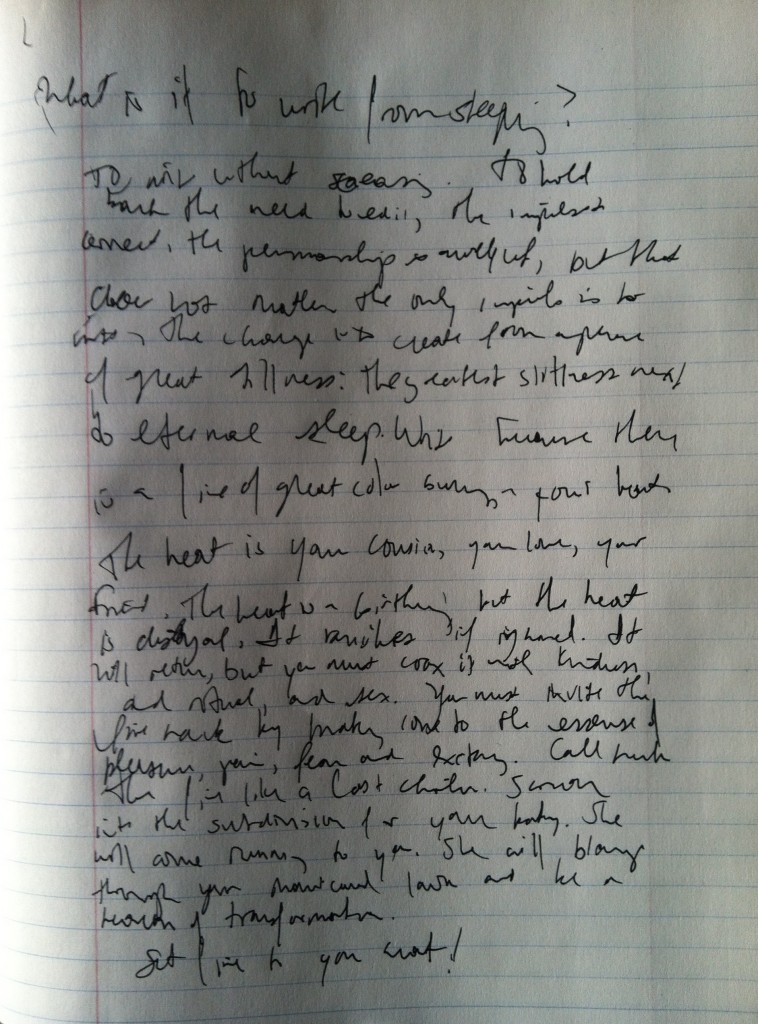 What is it to write from sleeping?
To without To hold
back the need to edit, the impulse to
correct. The penmanship is but that
does not matter the only impulse is to
the change is to create from a place
of great stillness: the greatest stillness next
to eternal sleep. Why because there
is a fire of great color burning in your heart
The heat is your cousin, your love, your
friend. The heat is a birthing but the heat
is disloyal. It vanishes if ignored. It
will return, but you must coax it with kindness,
and ritual, and sex. You must invite the
fire back by making love to the essence of
pleasure, pain, fear and ecstasy. Call back
the fire like a lost child. Scream
into the subdivision for your baby. She
will come running to you. She will
through your manicured lawn and be a
beacon of transformation.
Set fire to your